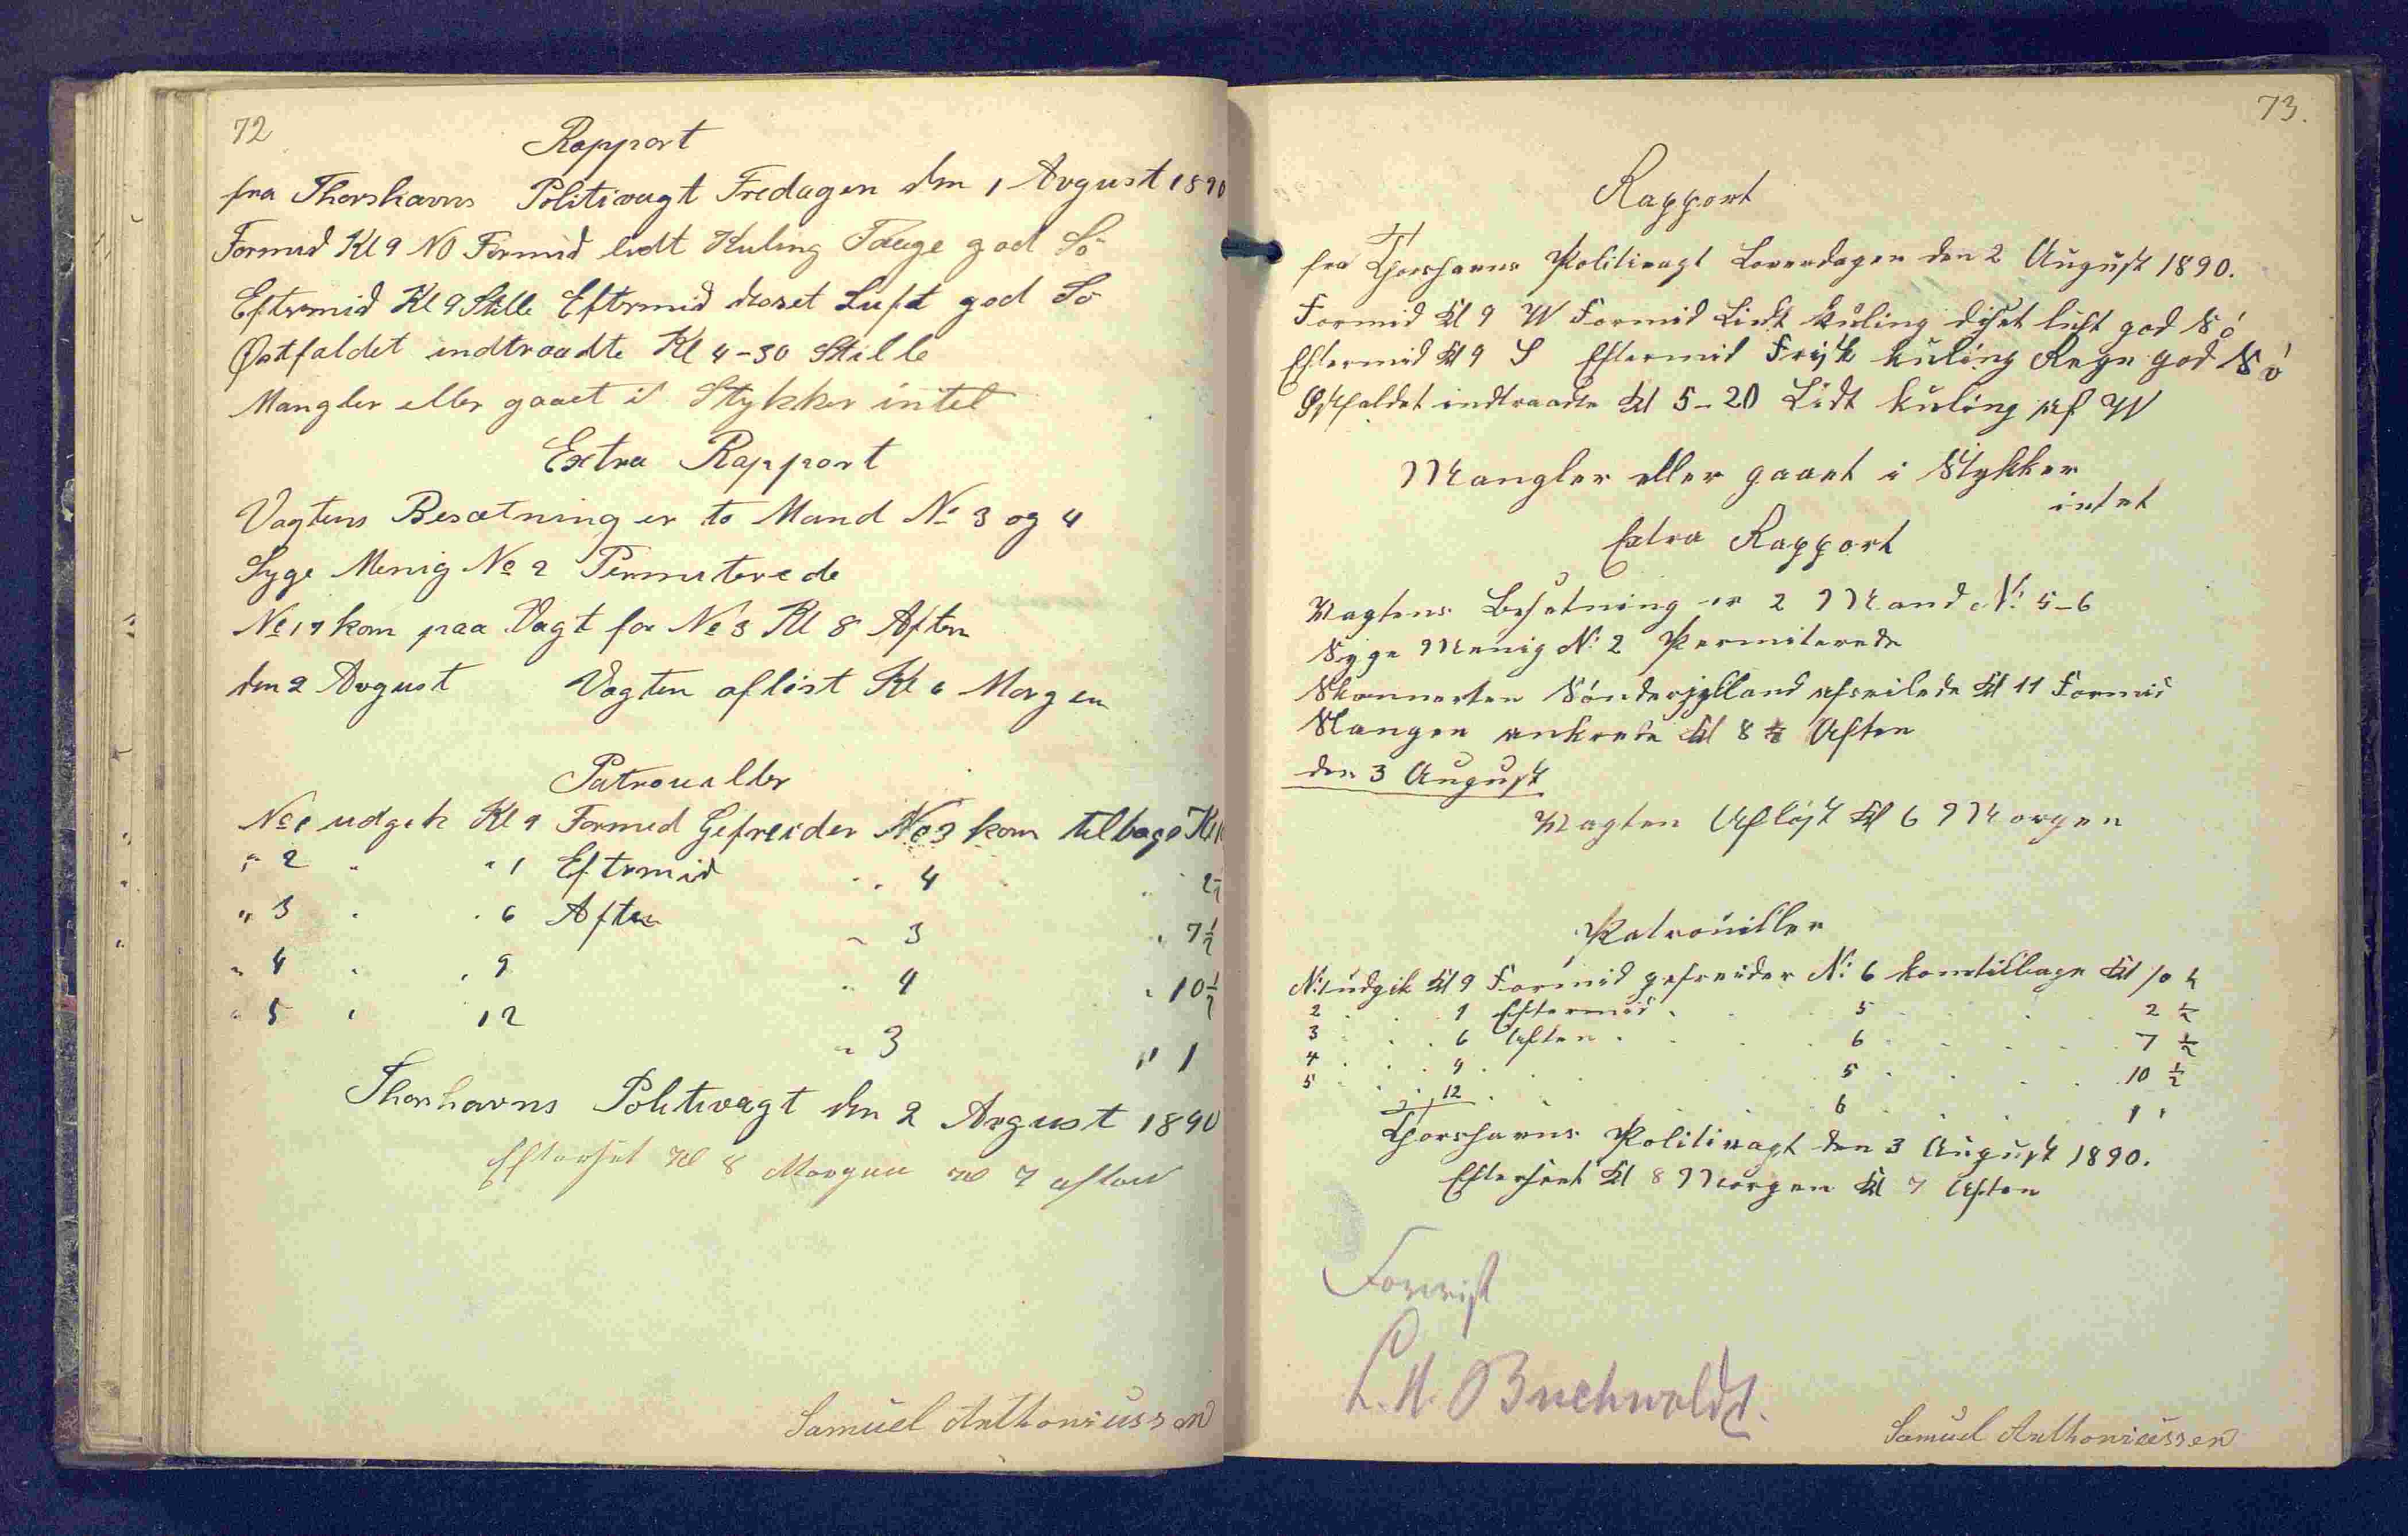 72
Rapport
fra Thorshavns Politivagt Fredagen den 1 August 1890
Formid Kl 9 NO Formid lidt Kuling Taage god Sö
Eftermid Kl 9 Stille Eftermid Luft god So
Østfaldet indtraadte Kl 4-30 Stille
Mangler eller gaaet i Stykker intet
Extra Rapport
Vagtens Besætning er to Mand No 3 og 4
Syge Menig No 2 Permiterede
No 17 kom paa Vagt for No 3 Kl 8 Aften
den 2 August Vagten aflöst Kl 6 Morgen
Patrouiller
No 1 udgik Kl 9 Formid Gefreider No 3 kom tilbage Kl
" 2 " " 1 Eftermid " " 4 " " 2½
" 3 " " 6 Aften " 3 " 7½
" 4 " " 9 " 4 " 10½
" 5 " 12 " 3 " 1
Thorshavns Politivagt den 2 August 1890
Efterset Kl 8 Morgen Kl 7 aften
Samuel Anthoniussen
73.
Rapport
fra Thorshavns Politivagt Loverdagen den 2 August 1890.
Formid Kl 9 W Formid Lidt kuling diset luft god Só
Eftermid Kl 9 S Eftermid Frisk kuling Regn god Só
Østfaldet indtraadte Kl 5-20 Lidt kuling af W
Mangler eller gaaet i Stykker
intet
Extra Rapport
Vagtens Besetning er 2 Mand N: 5-6
Syge Menig N: 2 Permiterede
Skonnerten Sónderjylland afseilede Kl 11 Formid
Slangen ankrede Kl 8 ½ Aften
den 3 August
Vagten Aflöst Kl 6 Morgen
Patrouiller
N: 1 udgik Kl 9 Formid gefreider N: 6 kom tilbage Kl 10 ½
2 . . 1 Eftermid . . 5 . . . 2 ½
3 . . 6 Aften . . 6 . . . 7 ½
4 . . 9 . . . 5 . . . 10 ½
5 . . 12 . . . 6 . . . 1 "
Thorshavns Politivagt den 3 August 1890.
Efterseet Kl 8 Morgen Kl 7 Aften
Forevist
Buchwaldt.
Samuel Anthoniussen